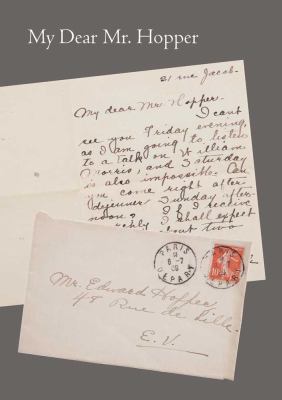 My Dear Mr. Hopper
21 rue Jacob.
My dear Mr. Hopper.
I cant
see you Friday evening,
as I am going to listen
to a talk on William
Morris, and Saturday
is also impossible. Can
come right after
dejeuner Sunday after-
noon? I receive
I shall expect
about two
PARIS
DEPART
Mr. Edward Hopper
48 Rue de Lille.
E. V.